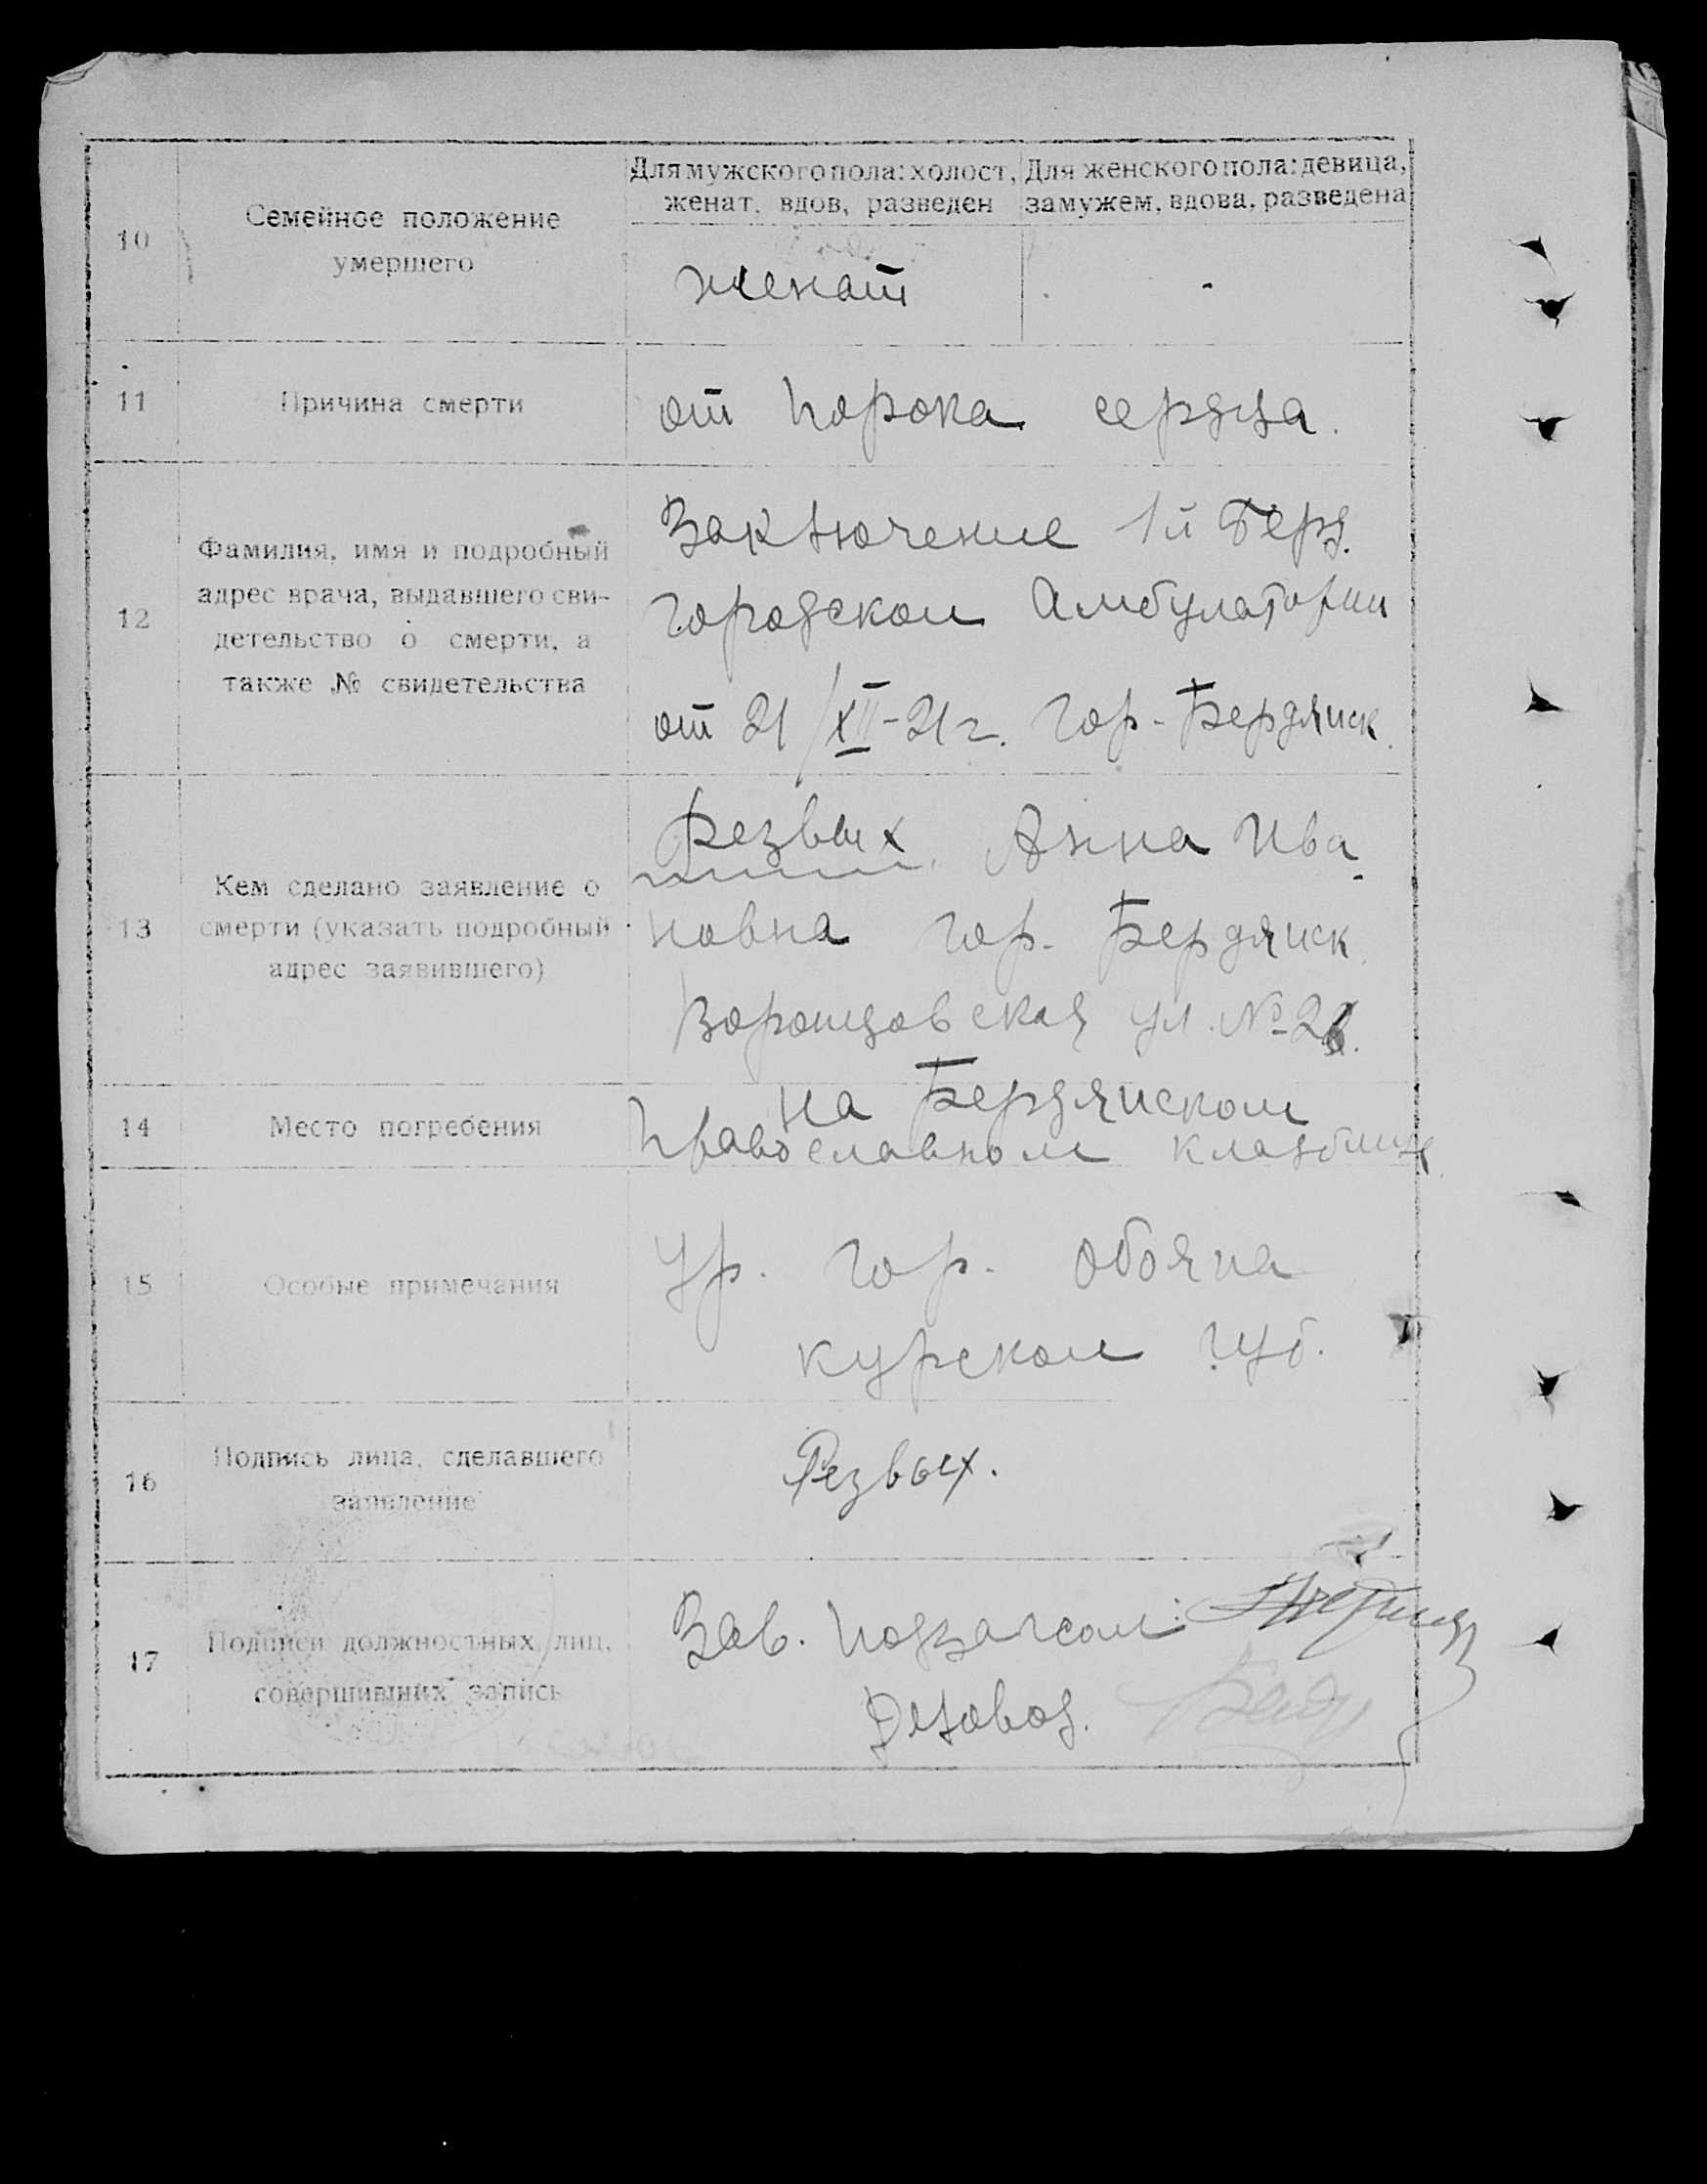 10
Семейное положение
умершего
Для мужского пола: холост,
женат, вдов, разведен
Для женского пола: девица,
замужем, вдова, разведена
женат
-
11
Причина смерти
от порока сердца.
12
Фамилия, имя и подробный
адрес врача, выдавшего сви-
детельство о смерти, а
также № свидетельства
Заключение 1й Берд.
городской Амбулатории
от 21/XII-21 г. гор. Бердянск.
13
Кем сделано заявление о
смерти (указать подробный
адрес заявившего)
Резвых Анна Ива-
новна гор. Бердянск.
Воронцовская ул. №
14
Место погребения
на Бердянском
православном кладбище
15
Особые примечания
Ур. гор. Обояна
Курской губ.
16
Подпись лица, сделавшего
заявление
Резвых.
17
Подписи должностных лиц,
совершивших запись
Зав. Подзагсом:
Деловод.